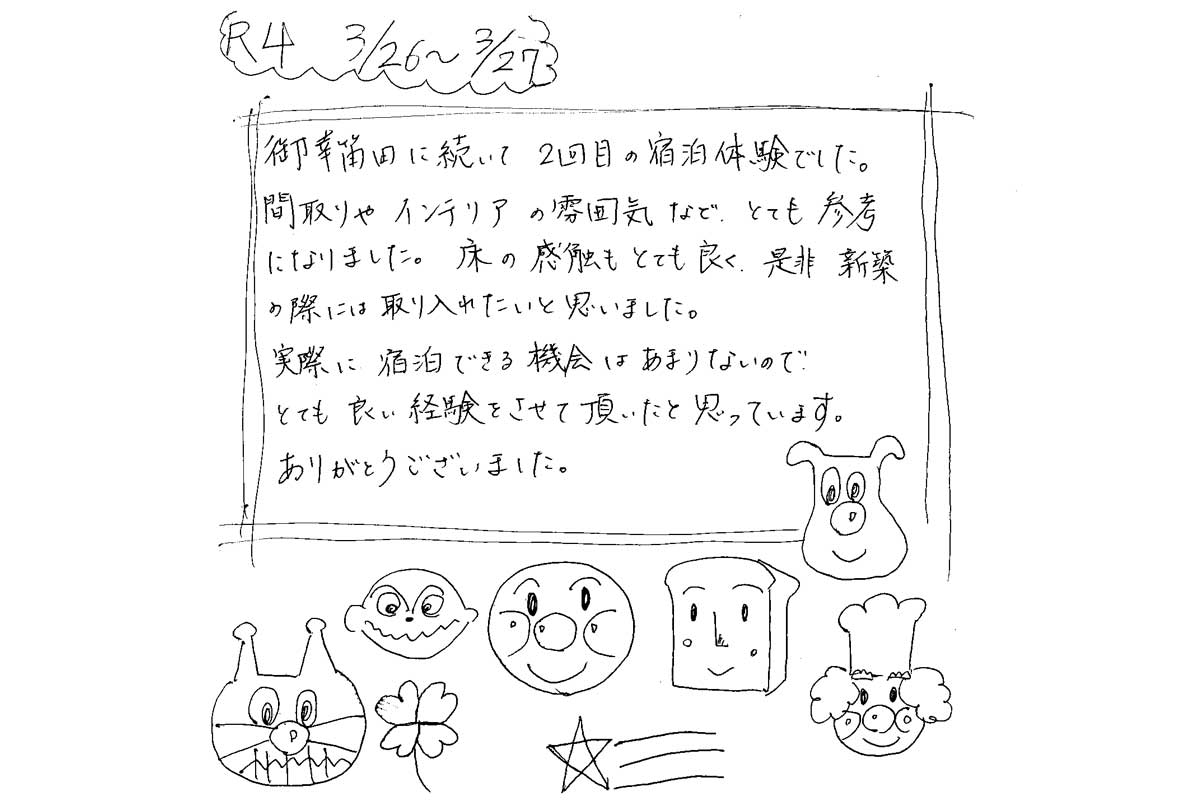 R4 3/26～3/27
御幸笛田に続いて 2回目の宿泊体験でした。
間取りや インテリア の雰囲気 など、とても 参考
になりました。 床の 感触も とても 良く、是非 新築
の際には 取り入れたいと思いました。
実際に 宿泊できる機会はあまりないので
とても 良い経験をさせて頂いたと思っています。
ありがとうございました。